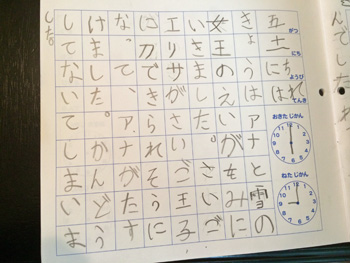 五がつ
十一にち
にちようび
はれてんき
おきたじかん
ねたじかん
きょうはアナと雪の
女王のえいがをみに
いきました。さいご
エリサがさいご王子
に刀できられそうに
なって、アナがたす
けました。かんどう
してないてしまいま
した。